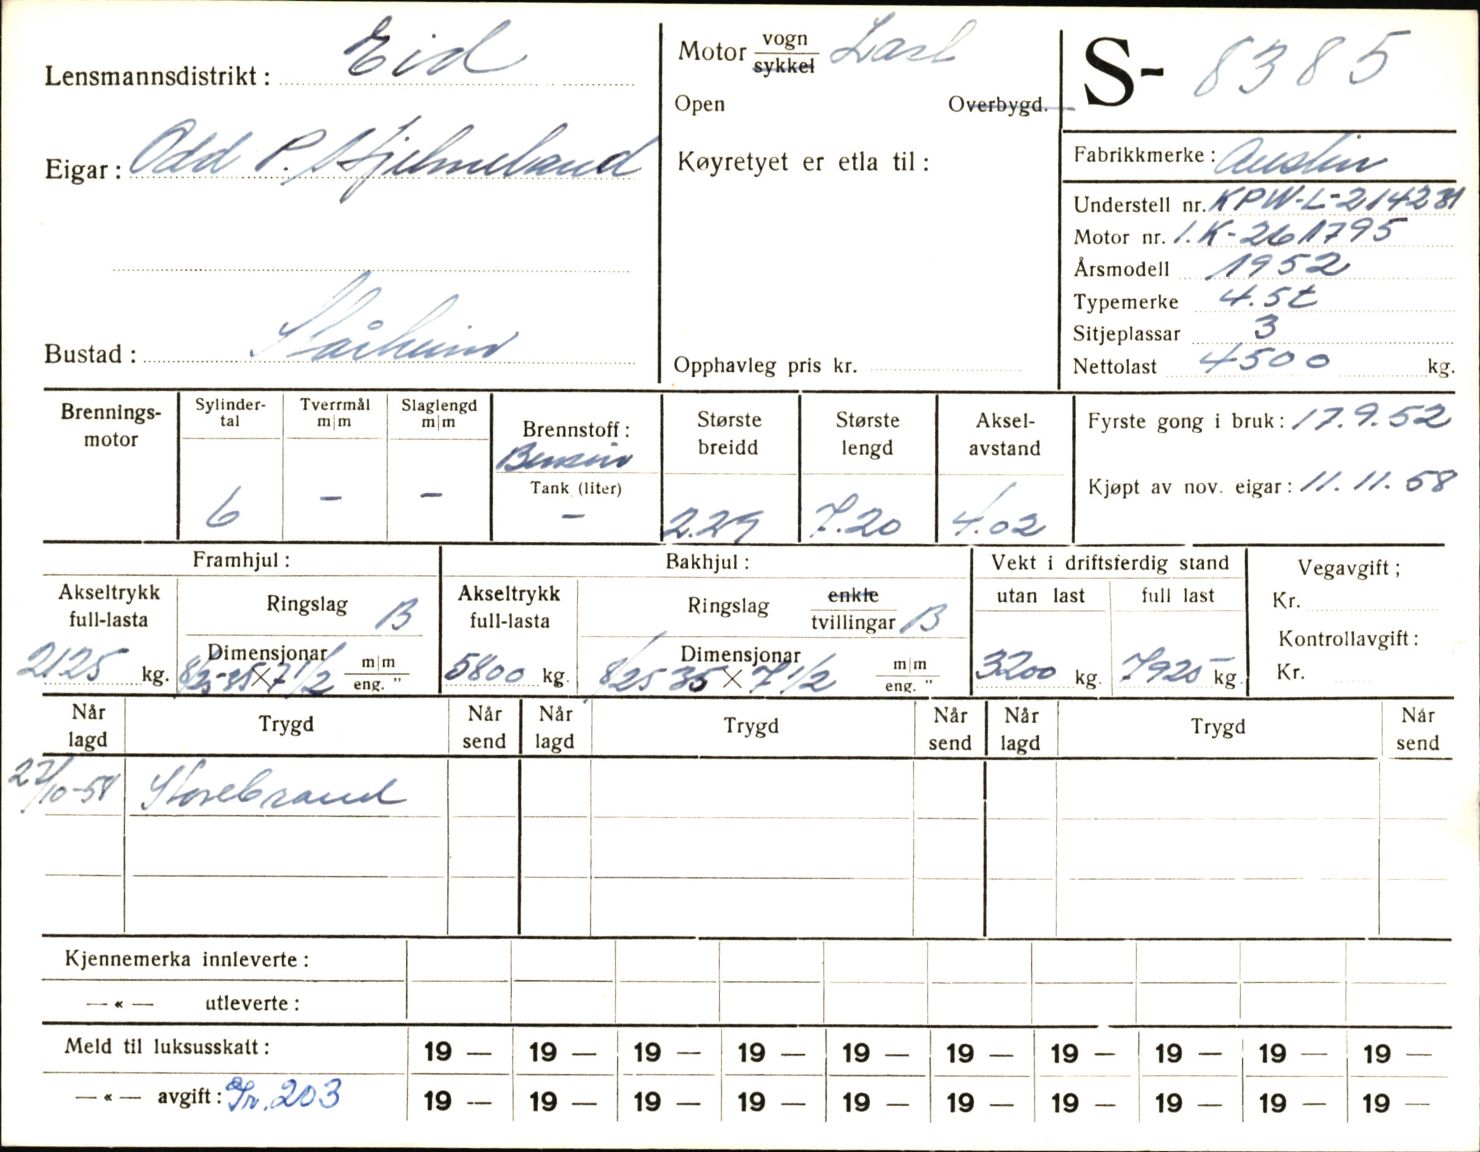 Lensmannsdistrikt: Eid
Motor vogn/sykkel Last
S- 8385
Open Overbygd.
Eigar: Odd P. Hjelmeland
Køyretyet er etla til:
Fabrikkmerke: Austin
Understell nr. KPW-L-214231
Motor nr. 1.K-261795
Årsmodell 1952
Typemerke 4.5t
Sitjeplassar 3
Bustad: Stårheim
Opphavleg pris kr.
Nettolast 4500 kg.
Brennings-motor
Sylinder-tal 6
Tverrmål m|m –
Slaglengd m|m –
Brennstoff: Bensin
Tank (liter) –
Største breidd 2.29
Største lengd 7.20
Aksel-avstand 4.02
Fyrste gong i bruk: 17.9.52
Kjøpt av nov. eigar: 11.11.58
Framhjul:
Akseltrykk full-lasta 2125 kg.
Ringslag B
Dimensjonar 8/25-35 x 7 1/2 m|m eng. "
Bakhjul:
Akseltrykk full-lasta 5800 kg.
Ringslag enkle tvillingar B
Dimensjonar 8/25 35 x 7 1/2 m|m eng. "
Vekt i driftsferdig stand
utan last 3200 kg.
full last 7925 kg.
Vegavgift;
Kr.
Kontrollavgift:
Kr.
Når lagd Trygd Når send Når lagd Trygd Når send Når lagd Trygd Når send
27/10-58 Storebrand
Kjennemerka innleverte:
— « — utleverte:
Meld til luksusskatt: 19 — 19 — 19 — 19 — 19 — 19 — 19 — 19 — 19 — 19 —
— « — avgift: Gr. 203 19 — 19 — 19 — 19 — 19 — 19 — 19 — 19 — 19 — 19 —